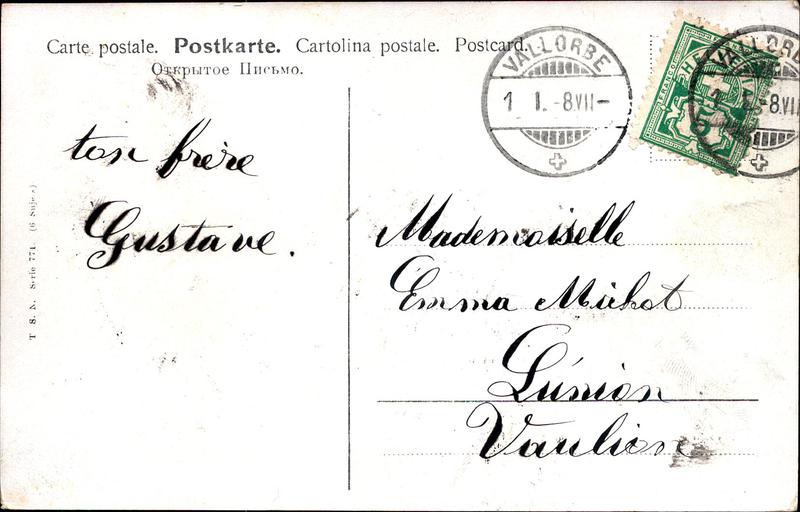 Carte postale. Postkarte. Cartolina postale. Postcard.
Открытое Письмо.
VALLORBE
1 I. -8 VII-
VALLORBE
1 -8 VII
FRANCO
ton frère
Gustave.
Mademoiselle
Emma Michot
L'únion
Vaulion
T. S. N. Serie 771. (6 Sujets)